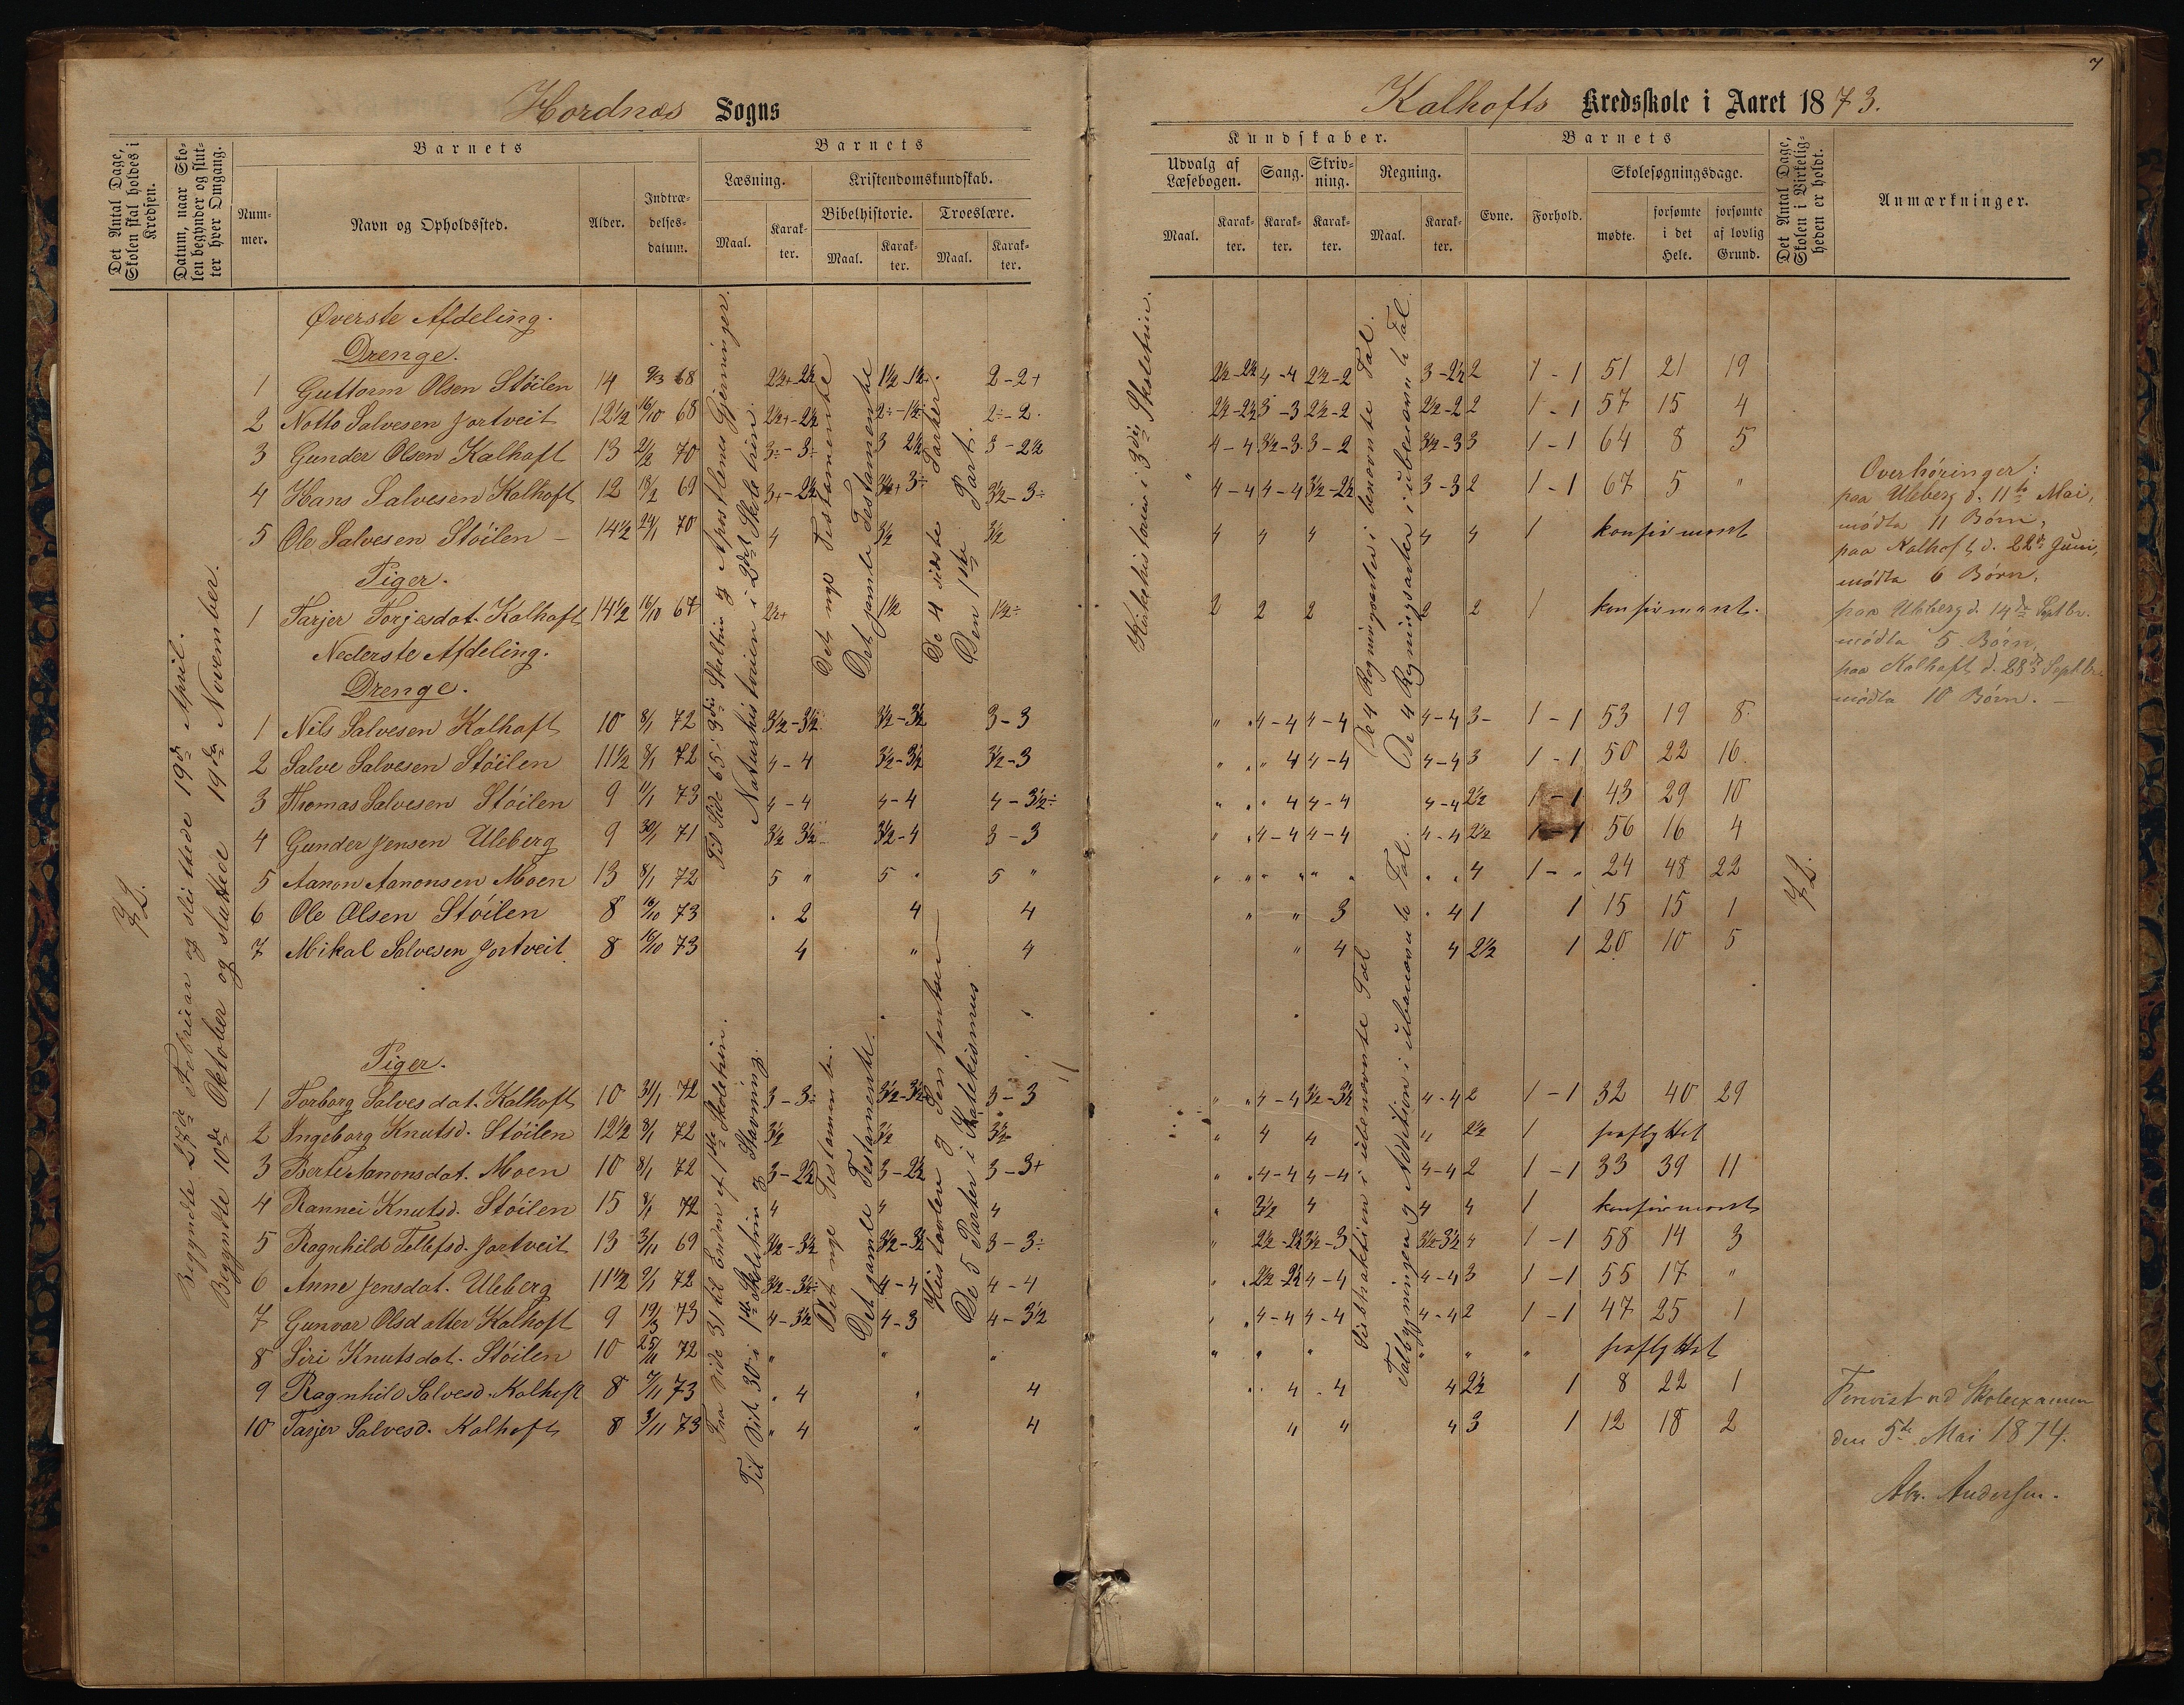 Hordnæs Sogns
Det Antal Dage, Skolen skal holdes i Kredsen.
Datum, naar Skolen begynder og slutter hver Omgang.
Barnets
Nummer.
Navn og Opholdssted.
Alder.
Indtrædelsesdatum.
Barnets
Læsning.
Maal.
Karakter.
Kristendomskundskab.
Bibelhistorie.
Maal.
Karakter.
Troeslære.
Maal.
Karakter.
72.
Begyndte 27de Februar og sluttede 19de April.
Begyndte 10de Oktober og sluttede 19de November.
Øverste Afdeling.
Drenge.
1 Guttorm Olsen Stöilen 14 9/3 68 2½+-2½ 1½-1½ 2-2+
2 Notto Salvesen Jortveit 12½ 16/10 68 2½+-2½ 2÷-1½ 2÷-2
3 Gunder Olsen Kalhoft 13 2/2 70 3÷-3÷ 3 2½ 3-2½
4 Hans Salvesen Kalhoft 12 18/2 69 3+-2½ 3½+ 3÷ 3½-3÷
5 Ole Salvesen Stöilen 14½ 24/1 70 4 3½ 3½
Piger.
1 Tarjer Torjesdat. Kalhoft 14½ 16/10 67 2½+ 1½ 1½÷
Nederste Afdeling.
Drenge.
1 Nils Salvesen Kalhoft 10 8/1 72 3½-3½ 3½-3½ 3-3
2 Salve Salvesen Stöilen 11½ 8/1 72 4-4 3½-3½ 3½-3
3 Thomas Salvesen Stöilen 9 11/1 73 4-4 4-4 4-3½÷
4 Gunder Jensen Uleberg 9 30/1 71 3½ 3½ 3½-4 3-3
5 Aanon Aanonsen Moen 13 8/1 72 5 " 5 " 5 "
6 Ole Olsen Stöilen 8 16/10 73 " 2 4 4
7 Mikal Salvesen Jortveit 8 16/10 73 4 " 4
Piger.
1 Torborg Salvesdat. Kalhoft 10 31/1 72 3-3÷ 3½-3½ 3-3
2 Ingeborg Knutsd. Stöilen 12½ 8/1 72 3½ 3½ 3½
3 Berte Aanonsdat. Moen 10 8/1 72 3-2½ 3-2½ 3-3+
4 Rannei Knutsd. Stöilen 15 8/1 72 4 4 4
5 Ragnhild Tellefsd. Jortveit 13 3/11 69 3½-3½ 3½-3½ 3-3÷
6 Anne Jensdat. Uleberg 11½ 9/1 72 3½-3½÷ 4-4 4-4
7 Gunvor Olsdatter Kalhoft 9 19/3 73 4-3½ 4-3 4-3½
8 Siri Knutsdat. Stöilen 10 25/11 72 " " "
9 Ragnhild Salvesd. Kalhoft 8 7/11 73 " 4 " 4
10 Tarjer Salvesd. Kalhoft 8 3/11 73 " 4 " 4
Til Side 65 i 3die Skoletrin og Apostlenes Gjerninger.
Naturhistorien i 2det Skoletrin.
Det nye Testamente
Det gamle Testamente
De 4 sidste Parter.
Den 1ste Part.
Fra Side 31 til Enden af 1ste Skoletrin.
Til Side 30 i 1ste Skoletrin og Stavning.
Det nye Testamente.
Det gamle Testamente.
Hustavlen og Sententser
De 5 Parter i Katekismus
7
Kalhofts Kredsskole i Aaret 1873.
Kundskaber.
Udvalg af Læsebogen.
Maal.
Karakter.
Sang.
Karakter.
Skrivning.
Karakter.
Regning.
Maal.
Karakter.
Barnets
Evne.
Forhold.
Skolesøgningsdage.
mødte.
forsømte i det Hele.
forsømte af lovlig Grund.
Det Antal Dage, Skolen i Virkeligheden er holdt.
Anmærkninger.
Kirkehistorien i 3die Skoletrin.
De 4 Regningsarter i benævnte Tal.
De 4 Regningsarter i ubenævnte Tal.
2½-2½ 4-4 2½-2 3-2½ 2 1-1 51 21 19
2½-2½ 3-3 2½-2 2½-2 2 1-1 57 15 4
4-4 3½-3 3-2 3½-3 3 1-1 64 8 5
" 4-4 4-4 3½-2½ 3-3 2 1-1 67 5 "
4 4 4 4 4 1 konfirmeret
2 2 2 2 2 1 konfirmeret.
" " 4-4 4-4 4-4 3- 1-1 53 19 8
" " " 4 4-4 4-4 3 1-1 50 22 16
" " " 4 4-4 4-4 2½ 1-1 43 29 10
" " 4-4 4-4 4-4 2½ 1-1 56 16 4
" " " " " " " " 4 1-" 24 48 22
" " 3 " 4 1 1 15 15 1
" 4 4 2½ 1 20 10 5
Subtraktion i ubenævnte Tal
Talbygningen og Addition i ubenævnte Tal.
" " 4-4 3½-3½ 4-4 2 1-1 32 40 29
" 4 4 " 2½ 1 fraflyttet
" " 4-4 4-4 4-4 2 1-1 33 39 11
" 3½ 4 4 4 1 konfirmeret
" 2½-2½ 3½-3 3½-3½ 4 1-1 58 14 3
" " 2½-2½ 4-4 4-4 3 1-1 55 17 "
" " 4-4 4-4 4-4 2 1-1 47 25 1
" " " " " " fraflyttet
" " 4 " 4 4 2½ 1 8 22 1
" " 4 3 1 12 18 2
72.
Overhøringer:
paa Uleberg d. 11te Mai,
mödte 11 Börn,
paa Kalhoft d. 22de Juni,
mödte 6 Börn,
paa Uleberg d. 14de Septbr.
mödte 5 Börn,
paa Kalhoft d. 28de Septbr.
mödte 10 Börn. —
Forevist ved Skoleexamen
den 5te Mai 1874.
Abr. Andersen.